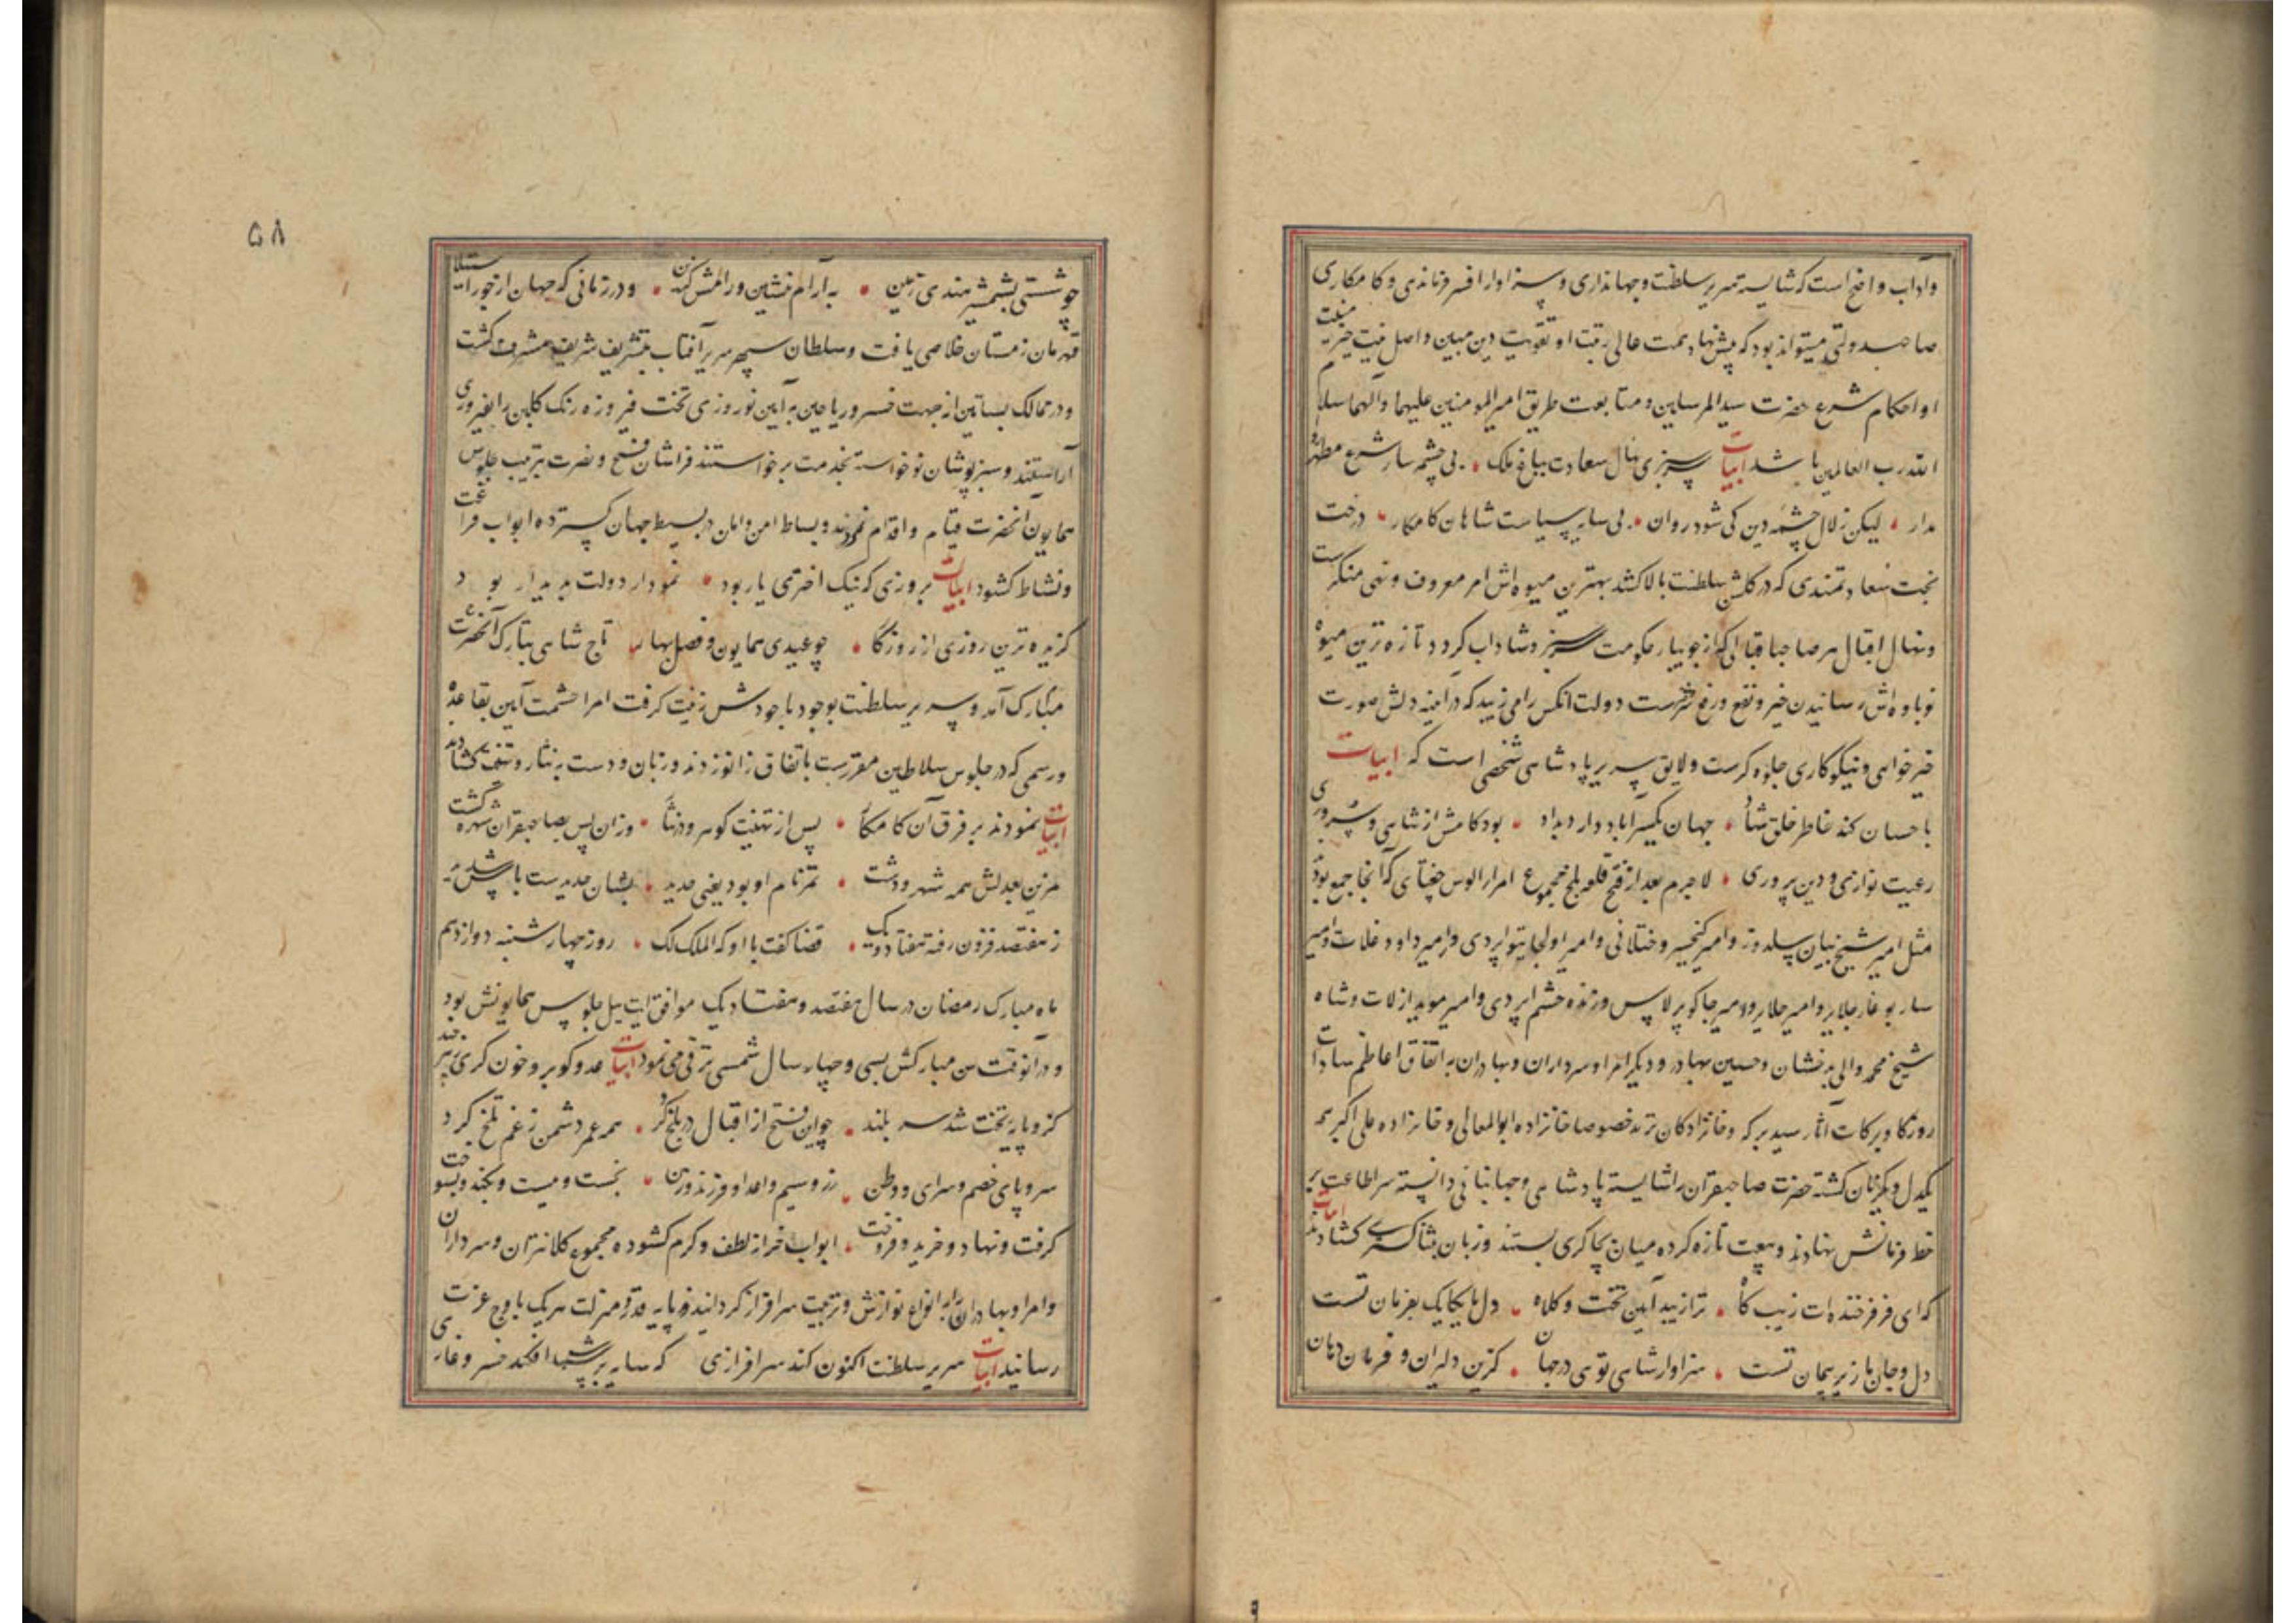 وآداب واضح است که شایسته سریر سلطنت وجهانداری وسزاوار افسر فرماندهی وکامکاری
صاحب دولتی میتواند بود که پیش نهاد همت عالی رتبت او تقویت دین مبین واصل نیت خیر
او احکام شرع حضرت سید المرسلین ومتابعت طریق امیر المومنین علیهما وآلهما سلام
الله رب العالمین باشد ابیات سرسبزی نهال سعادت بباغ ملک بی چشمه سار شرع مطهر
مدار لیکن زلال چشمه دین کی شود روان بی سایه سیاست شاهان کامکار درخت
بخت سعادتمندی که در گلشن سلطنت بالا کشد بهترین میوه اش امر معروف ونهی منکرست
ونهال اقبال هر صاحب اقبالی که از جویبار حکومت سبز وشاداب گردد تازه ترین میوه
نوباوه اش رسانیدن خیر ونفع ورفع شرست دولت انکس را می زیبد که در آینه دلش صورت
خیرخواهی ونیکوکاری جلوه گرست ولایق سریر پادشاهی شخصی است که ابیات
باحسان کند خاطر خلق شاد جهان یکسر آباد دارد بداد بود کامش از شاهی وسروری
رعیت نوازی ودین پروری لاجرم بعد از فتح قلعه بلخ مجموع امرا الوس جغتای که آنجا جمع بودند
مثل امیر شیخ بیان سلدوز وامیر کیخسرو ختلانی وامیر اولجایتو اپردی وامیر داود دغلات وامیر
ساربوغا جلایر وامیر جاکو برلاس وزنده حشم اپردی وامیر موید ارلات وشاه
شیخ محمد والی بدخشان وحسین بهادر ودیگر امرا وسرداران وبهادران به اتفاق اعاظم سادات
روزگار وبرکات آثار سید برکه وخانزادگان ترمد خصوصا خانزاده ابوالمعالی وخانزاده علی اکبر همه
یکدل ویکزبان گشته حضرت صاحبقران را شایسته پادشاهی وجهانبانی دانسته سر اطاعت بر
خط فرمانش نهادند وبیعت تازه کرده میان بچاکری بستند وزبان بثنا گستری گشادند ابیات
که ای فر فرخنده ات زیب گاه ترا زیبد آیین تخت وکلاه دل ما یکایک بفرمان تست
دل وجان ما زیر پیمان تست سزاوار شاهی توی در جهان گزین دلیران وفرمان دهان
۵۸
چو شستی بشمشیر هندی زمین به آرام بنشین ورامش گزین ودر زمانی که جهان از جور استیلا
قهرمان زمستان خلاصی یافت وسلطان سپهر سریر آفتاب بتشریف شریف مشرف گشت
ودر ممالک بساتین از جهت خسرو ریاحین به آیین نوروزی تخت فیروزه رنگ گلبن را بفیروزی
آراستند وسبزپوشان نوخواسته بخدمت برخواستند فراشان فتح ونصرت بترتیب جلوس
همایون آنحضرت قیام واقدام نمودند وبساط امن وامان در بسیط جهان گسترده ابواب فراغت
ونشاط گشود ابیات بروزی که نیک اختری یار بود نمودار دولت پدیدار بود
گزیده ترین روزی از روزگار چو عیدی همایون وفصل بهار تاج شاهی بتارک آنحضرت
مبارک آمد وسریر سلطنت بوجود باجودش زینت گرفت امرا حشمت آیین بقاعده
ورسمی که در جلوس سلاطین مقررست باتفاق زانو زدند وزبان ودست به نثار وتهنیت گشادند
ابیات نمودند بر فرق آن کامگار پس از تهنیت گوهر وزر نثار وزان پس بصاحبقران شهره گشت
مزین بعدلش همه شهر ودشت تمر نام او بود یعنی حدید بشان حدیدست باس شدید
ز هفتصد فزون رفته هفتاد ویک قضا گفت با او که الملک لک روز چهارشنبه دوازدهم
ماه مبارک رمضان در سال هفتصد وهفتاد ویک موافق ایت ییل جلوس همایونش بود
ودر آنوقت سن مبارکش بسی وچهار سال شمسی ترقی می نمود ابیات عدو گو برو خون گری
کزو پایه تخت شد سربلند چو این فتح از اقبال در بلخ کرد همه عمر دشمن ز غم تلخ کرد
سر وپای خصم وسرای ووطن زر وسیم واعدا وفرزند وزن بخست وببست وبکند وبسوخت
گرفت ونهاد وخرید وفروخت ابواب خزاز لطف وکرم گشوده مجموع کلانتران وسرداران
وامرا وبهادران را به انواع نوازش وتربیت سرافراز گردانید وپایه قدر ومنزلت هریک باوج عزت
رسانید ابیات سریر سلطنت اکنون کند سرافرازی که سایه بر سرش افکند خسرو غازی